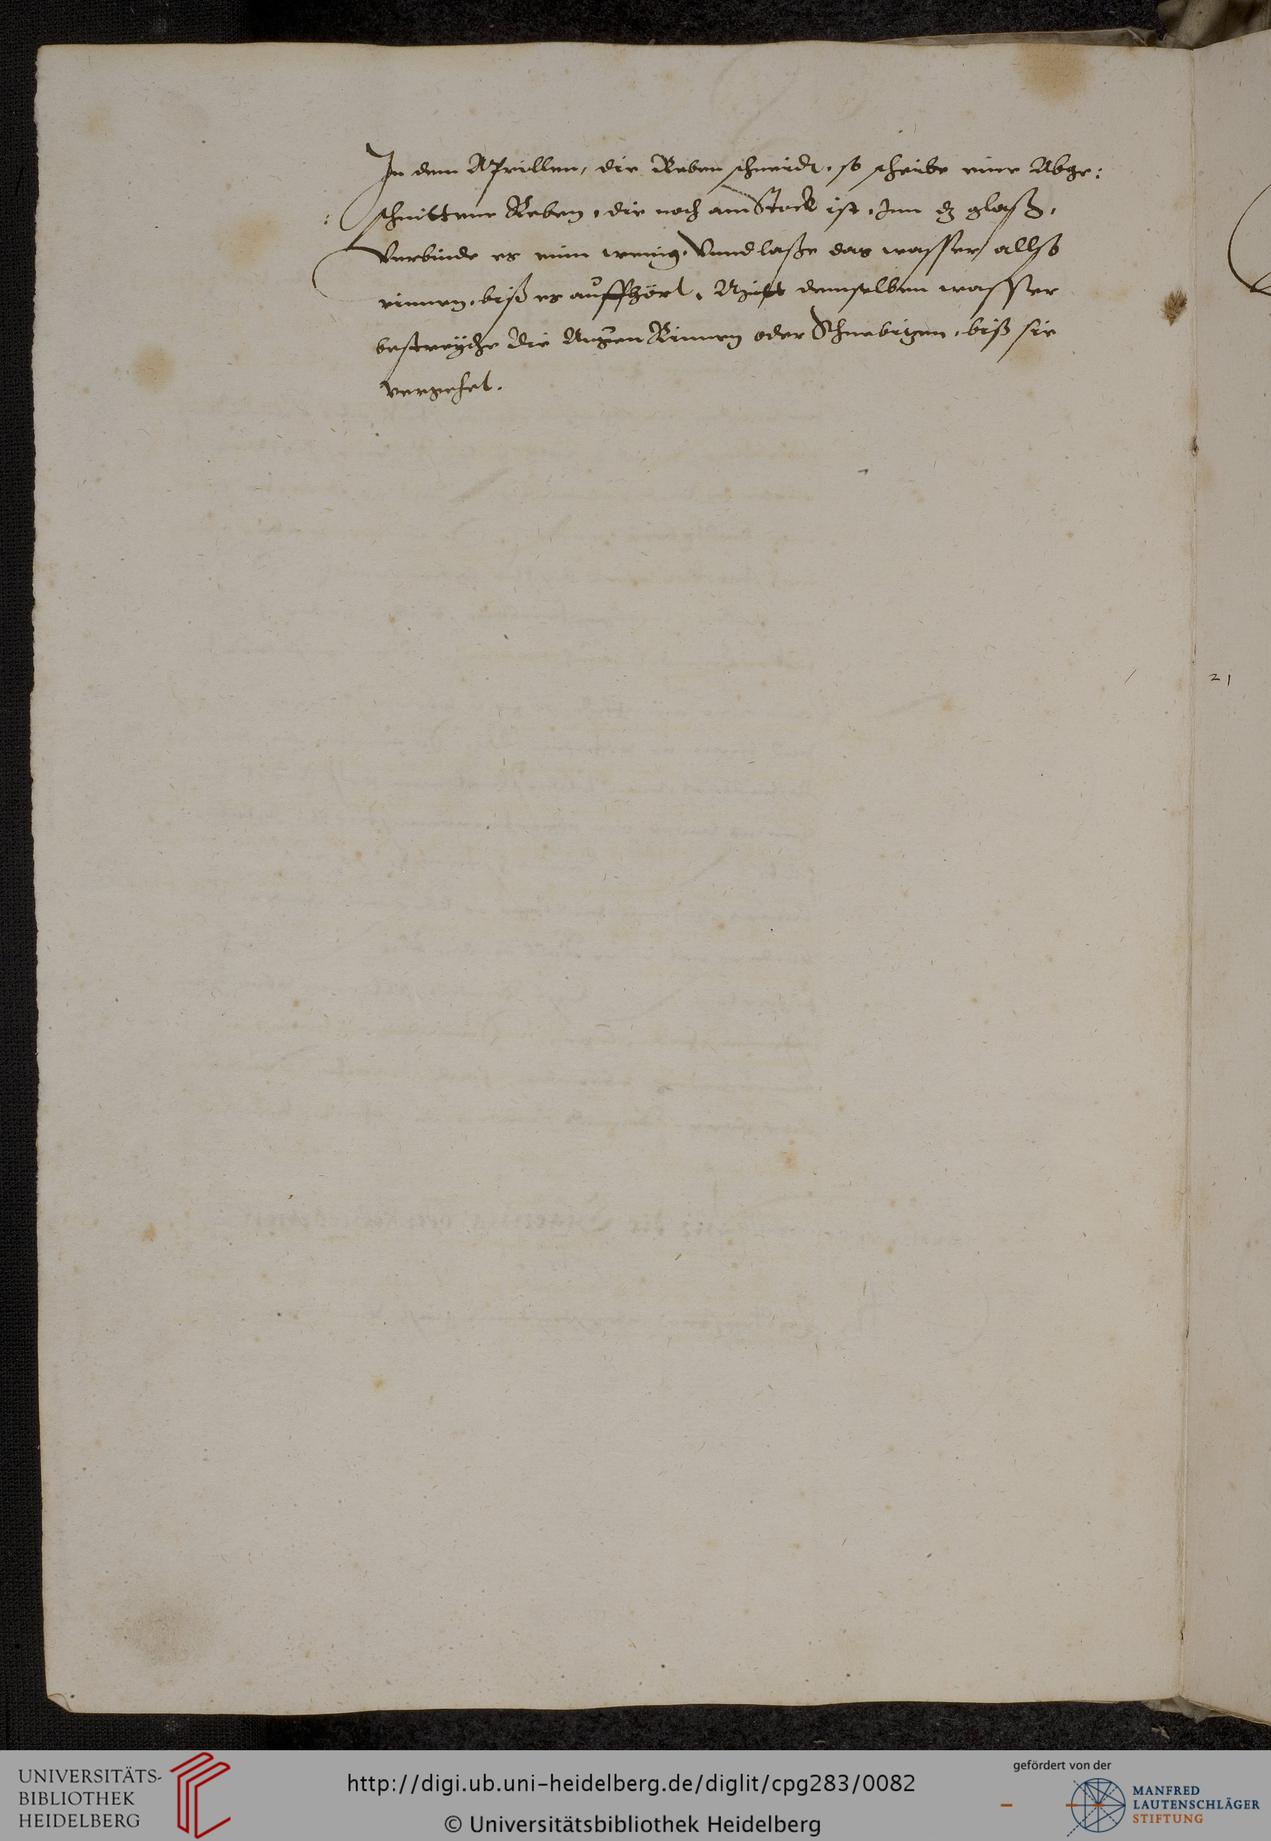 In dem Aprillen, die Reben schneidt, so scheibe eine Abge:
: schnittene Reben, die noch am Stock ist, Inn dz glaß,
Verbinde es einn wenig, Vnnd laße das wasser allso
rinnen, biß es auffhört, Mitt demselben wasser
bestreyche die Augen Rinnen oder Schnebigen, biß sie
vergehet.
21
UNIVERSITÄTS-
BIBLIOTHEK
HEIDELBERG
http://digi.ub.uni-heidelberg.de/diglit/cpg283/0082
© Universitätsbibliothek Heidelberg
gefördert von der
MANFRED
LAUTENSCHLÄGER
STIFTUNG